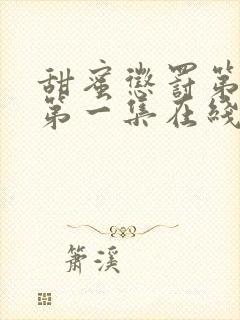 甜蜜懲罚第
第一集在线
箫溪